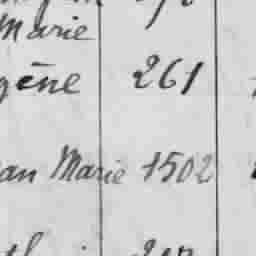 Marie
gène 261
an Marie 1502